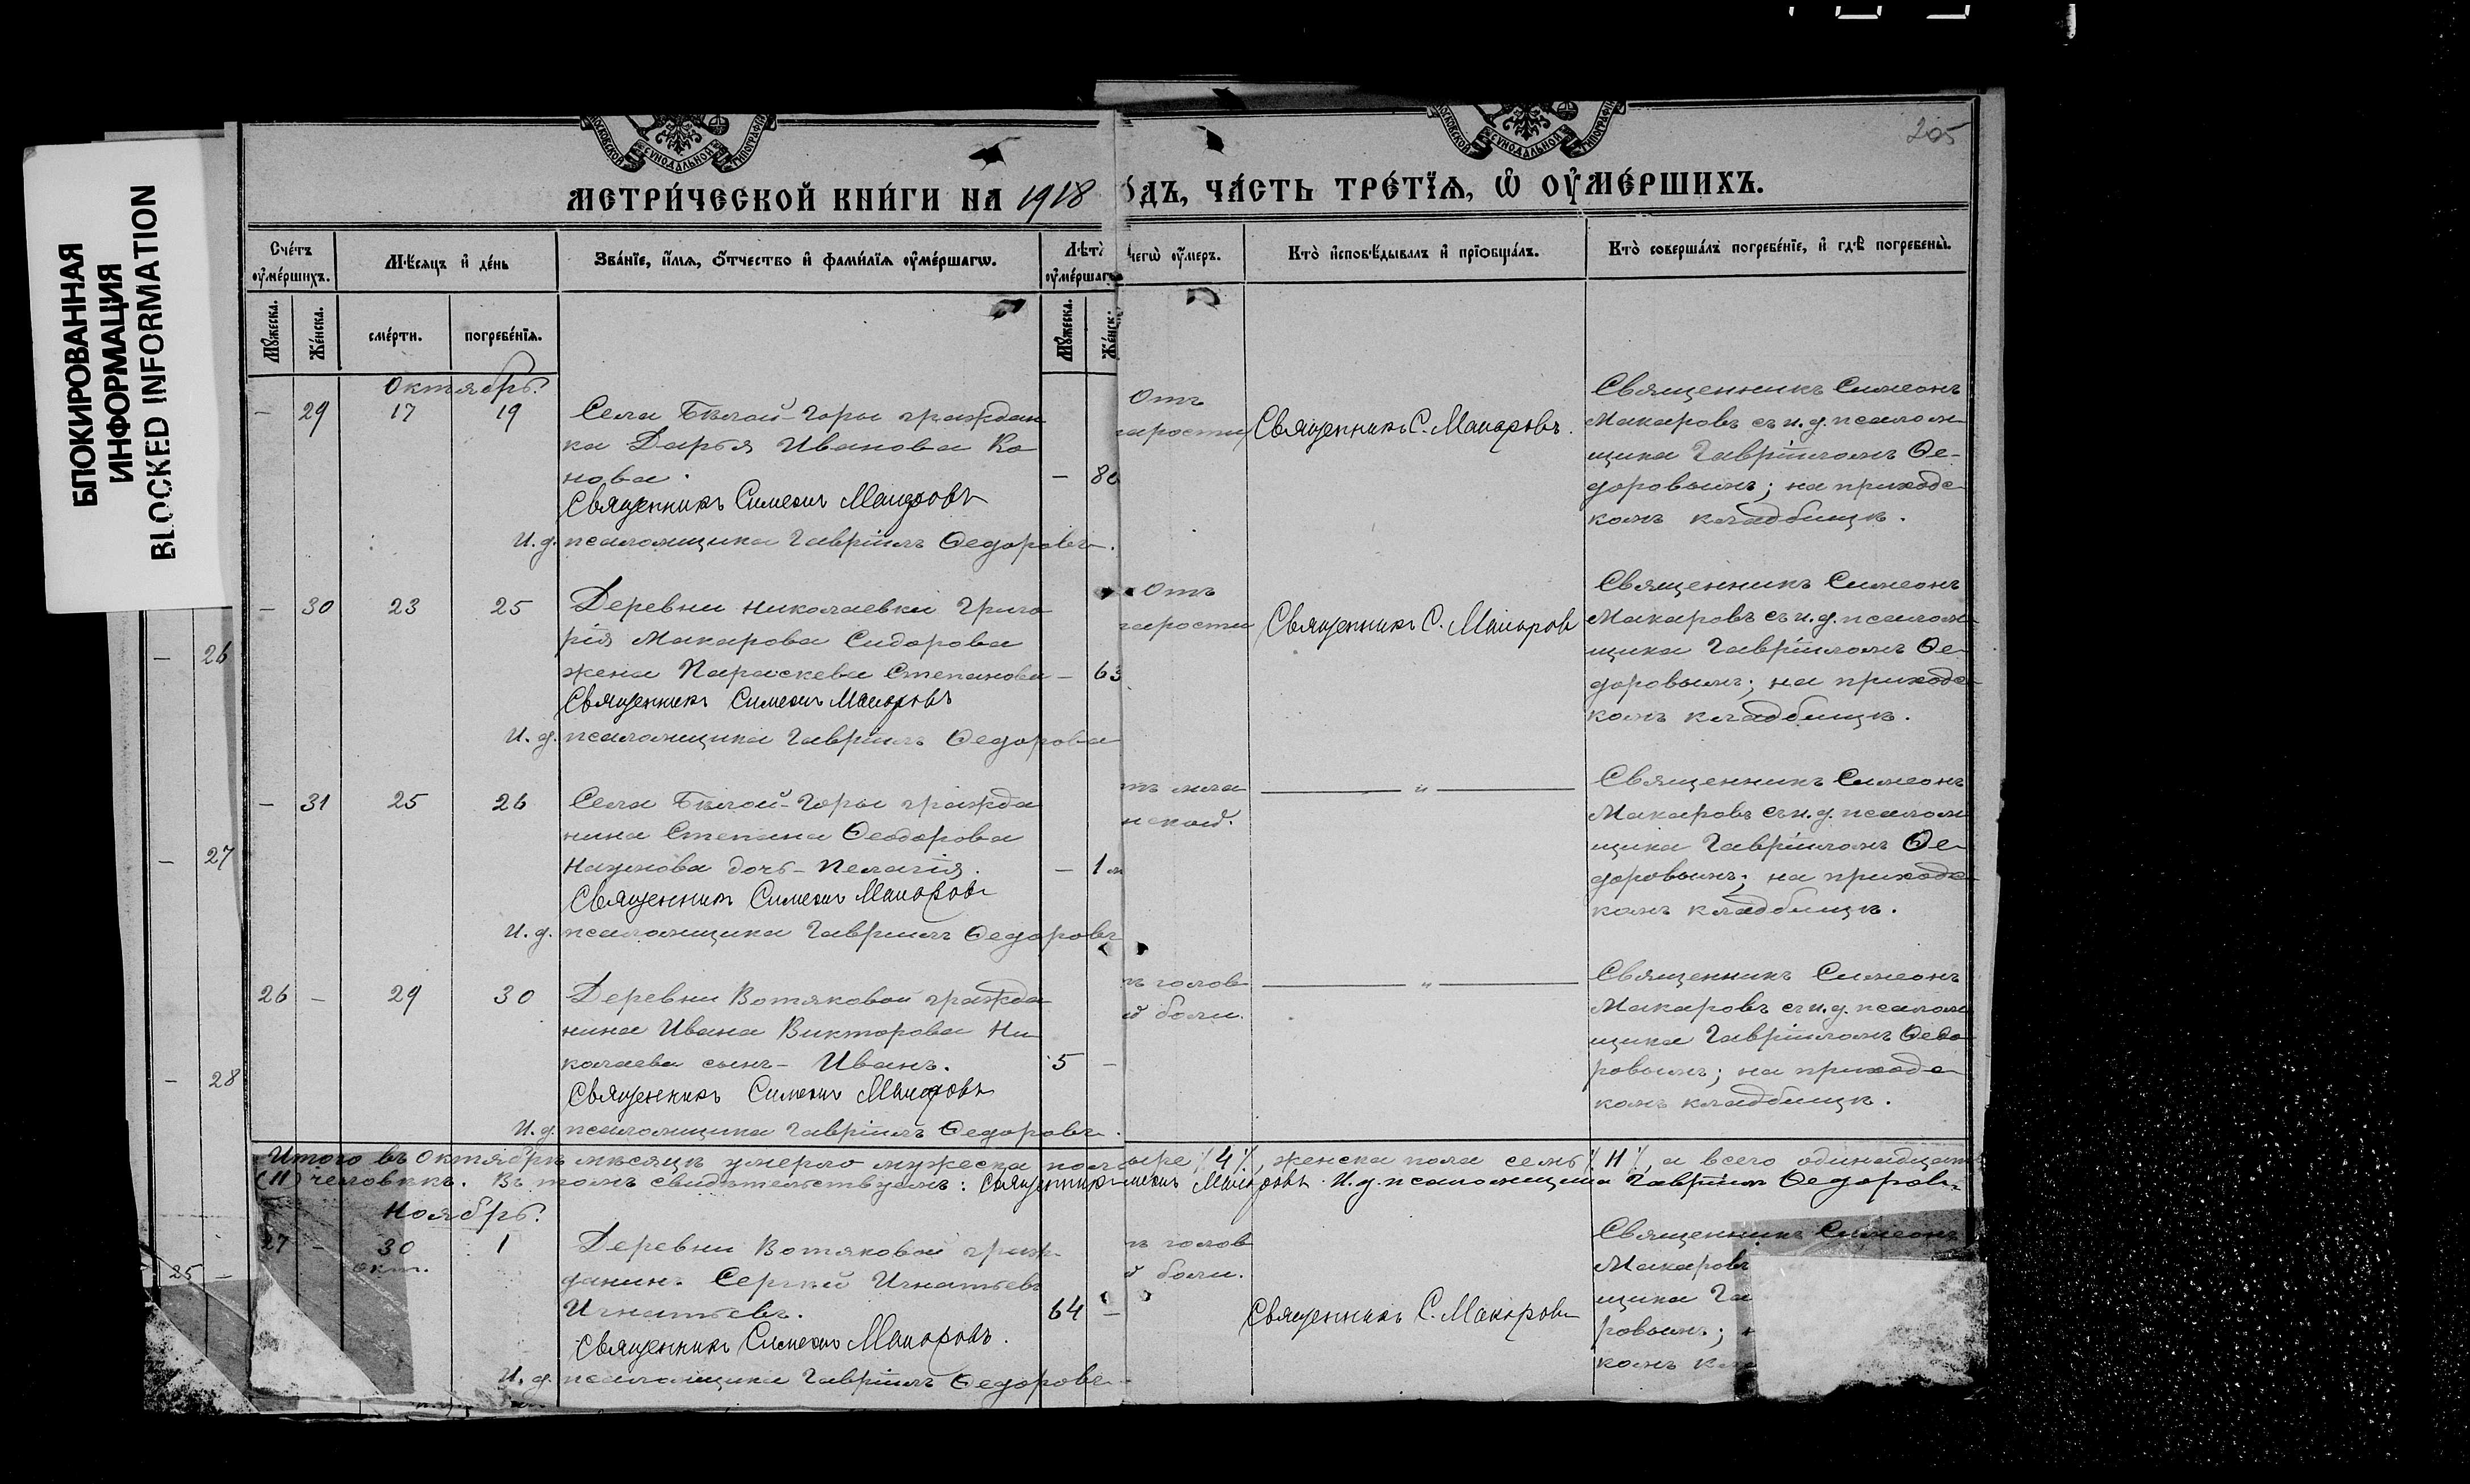 БЛОКИРОВАННАЯ
ИНФОРМАЦИЯ
BLOCKED INFORMATION
МОСКОВСКОЙ СѴНОДАЛЬНОЙ ТИПОГРАФІИ
МОСКОВСКОЙ СѴНОДАЛЬНОЙ ТИПОГРАФІИ
205
МЕТРИ́ЧЕСКОЙ КНИ́ГИ НА 1918
ОДЪ, ЧА́СТЬ ТРЕ́ТЇѦ, Ѡ҆ ОУ҆МЕ́РШИХЪ.
Сче́тъ оу҆ме́ршихъ.
Мѣ́сяцъ и҆ де́нь
Зва́нїе, и҆́мя, о҆́тчество и҆ фами́лїя оу҆ме́ршагѡ.
Лѣтъ оу҆ме́ршаг
чегѡ̀ оу҆́меръ.
Кто̀ и҆сповѣ́дывалъ и҆ прїѡбща́лъ.
Кто̀ соверша́лъ погребе́нїе, и҆ гдѣ̀ погребены̀.
Мꙋ́жеска.
Же́нска.
сме́рти.
погребе́нїя.
Мꙋ́жеска.
Же́нск.
Октябрь.
— 29 17 19 Села Бѣлой-Горы граждан
ка Дарья Иванова Ко
нова. — 80
Священникъ Симеонъ Макаровъ
И.д. псаломщика Гавріилъ Ѳедоровъ.
Отъ
тарости
Священникъ С. Макаровъ.
Священникъ Симеонъ
Макаровъ съ и.д. псалом
щика Гавріиломъ Ѳе-
доровымъ; на приходс
комъ кладбищѣ.
— 30 23 25 Деревни Николаевки Григо
рія Макарова Сидорова
жена Параскева Степанова — 63
Священникъ Симеонъ Макаровъ
И.д. псаломщика Гавріилъ Ѳедоровъ
Отъ
тарости
Священникъ С. Макаровъ
Священникъ Симеонъ
Макаровъ съ и.д. псалом-
щика Гавріиломъ Ѳе
доровымъ; на приходс
комъ кладбищѣ.
— 31 25 26 Села Бѣлой-Горы гражда
нина Степана Ѳеодорова
Наумова дочь - Пелагія. — 1 м
Священникъ Симеонъ Макаровъ
И.д. псаломщика Гавріилъ Ѳедоровъ
тъ мла
нской.
— „ —
Священникъ Симеонъ
Макаровъ съ и.д. псалом
щика Гавріиломъ Ѳе
доровымъ; на приходс
комъ кладбищѣ.
26 — 29 30 Деревни Вотяковой гражда
нина Ивана Викторова Ни
колаева сынъ - Иванъ. 5 —
Священникъ Симеонъ Макаровъ
И.д. псаломщика Гавріилъ Ѳедоровъ.
ъ голов
й боли.
— „ —
Священникъ Симеонъ
Макаровъ съ и.д. псалом
щика Гавріиломъ Ѳедо
ровымъ; на приходс
комъ кладбищѣ.
Итого въ Октябрѣ мѣсяцѣ умерло мужеска пола
ыре /4/, женска пола семь , а всего одинадцать
(11) человѣкъ. Въ томъ свидѣтельствуемъ: Священникъ
меонъ Макаровъ. И.д. псаломщика Гавріилъ Ѳедоровъ.
Ноябрь.
27 — 30 1 Деревни Вотяковой граж-
окт.
данинъ Сергѣй Игнатьевъ
Игнатьевъ. 64 —
Священникъ Симеонъ Макаровъ.
И.д. псаломщика Гавріилъ Ѳедоровъ
ъ голов
й боли.
Священникъ С. Макаровъ
Священникъ Симеонъ
Макаровъ
щика Га
ровымъ; н
комъ кла
— 26
— 27
— 28
25 —